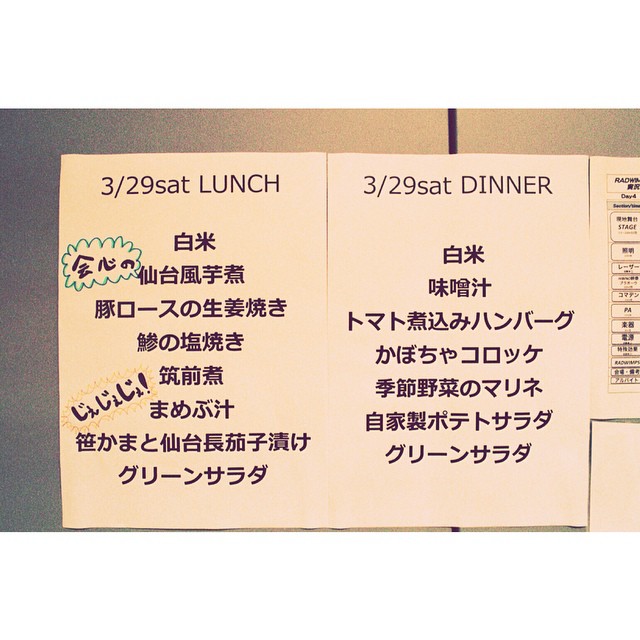 3/29sat LUNCH
白米
会心の
仙台風芋煮
豚ロースの生姜焼き
鯵の塩焼き
筑前煮
じぇじぇじぇ!
まめぶ汁
笹かまと仙台長茄子漬け
グリーンサラダ
3/29sat DINNER
白米
味噌汁
トマト煮込みハンバーグ
かぼちゃコロッケ
季節野菜のマリネ
自家製ポテトサラダ
グリーンサラダ
RADWIM
実況
Day4
現地買付
STAGE
照明
レーザー
コマデン
PA
楽器
電源
特殊効果
RADWIMPS
会場・備考
アルバイト